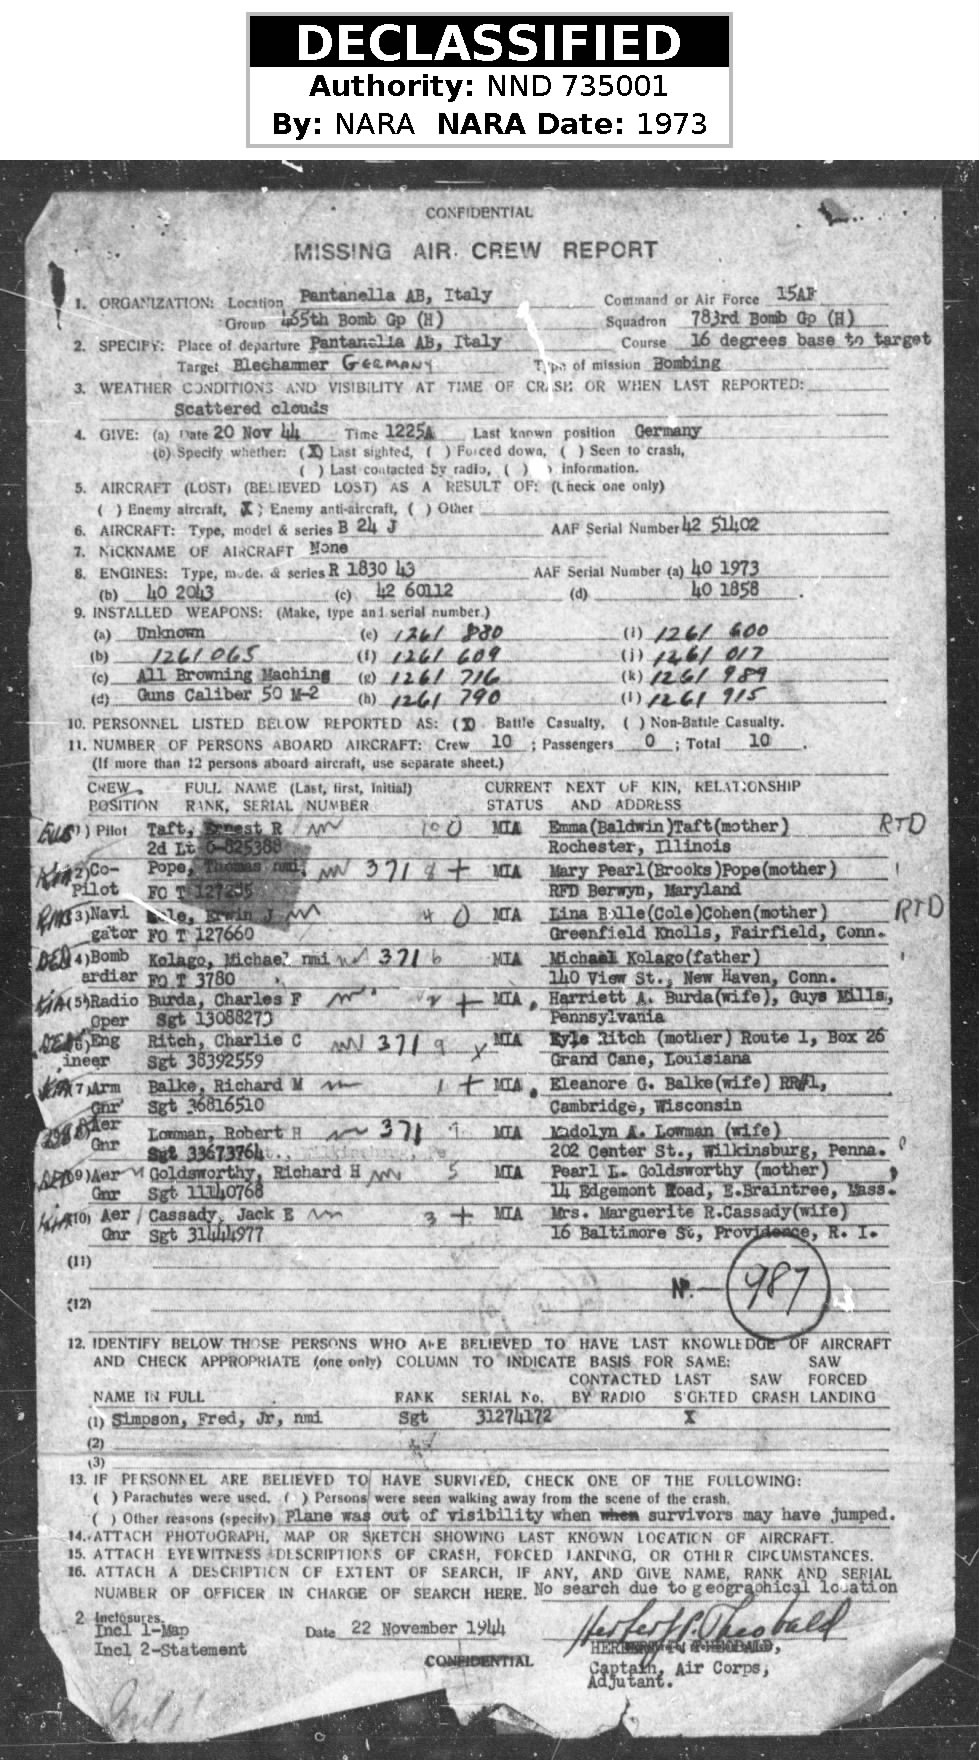 DECLASSIFIED
Authority: NND 735001
By: NARA NARA Date: 1973
CONFIDENTIAL
MISSING AIR CREW REPORT
1. ORGANIZATION: Location Pantanella AB, Italy Command or Air Force 15AF
Group 465th Bomb Gp (H) Squadron 783rd Bomb Gp (H)
2. SPECIFY: Place of departure Pantanella AB, Italy Course 16 degrees base to target
Target Blechammer GERMANY Type of mission Bombing
3. WEATHER CONDITIONS AND VISIBILITY AT TIME OF CRASH OR WHEN LAST REPORTED:
Scattered clouds
4. GIVE: (a) Date 20 Nov 44 Time 1225A Last known position Germany
(b) Specify whether: (X) Last sighted, ( ) Forced down, ( ) Seen to crash,
( ) Last contacted by radio, ( ) information.
5. AIRCRAFT (LOST) (BELIEVED LOST) AS A RESULT OF: (Check one only)
( ) Enemy aircraft, X ) Enemy anti-aircraft, ( ) Other
6. AIRCRAFT: Type, model & series B 24 J AAF Serial Number 42 51402
7. NICKNAME OF AIRCRAFT None
8. ENGINES: Type, mode. & series R 1830 43 AAF Serial Number (a) 40 1973
(b) 40 2043 (c) 42 60112 (d) 40 1858
9. INSTALLED WEAPONS: (Make, type and serial number.)
(a) Unknown (e) 1261 880 (i) 1261 600
(b) 1261 065 (f) 1261 609 (j) 1261 017
(c) All Browning Maching (g) 1261 716 (k) 1261 989
(d) Guns Caliber 50 M-2 (h) 1261 790 (l) 1261 915
10. PERSONNEL LISTED BELOW REPORTED AS: (X) Battle Casualty, ( ) Non-Battle Casualty.
11. NUMBER OF PERSONS ABOARD AIRCRAFT: Crew 10 ; Passengers 0 ; Total 10 .
(If more than 12 persons aboard aircraft, use separate sheet.)
CREW FULL NAME (Last, first, initial) CURRENT NEXT OF KIN, RELATIONSHIP
POSITION RANK, SERIAL NUMBER STATUS AND ADDRESS
EUS 1) Pilot Taft, Ernest R MIA Emma(Baldwin)Taft(mother) RTD
2d Lt O-825388 Rochester, Illinois
KIA 2)Co- Pope, Thomas nmi, 371 8 + MIA Mary Pearl(Brooks)Pope(mother)
Pilot FO T 127235 RFD Berwyn, Maryland
RMS 3)Navi Erwin J 4 0 MIA Lina Bolle(Cole)Cohen(mother) RTD
gator FO T 127660 Greenfield Knolls, Fairfield, Conn.
DED 4)Bomb Kolago, Michael nmi 371 6 MIA Michael Kolago(father)
ardiar FO T 3780 140 View St., New Haven, Conn.
KIA (5)Radio Burda, Charles F 2 + MIA. Harriett A. Burda(wife), Guys Mills,
Oper Sgt 13088273 Pennsylvania
DED 6)Eng Ritch, Charlie C 371 9 x MIA Kyle Ritch (mother) Route 1, Box 26
ineer Sgt 38392559 Grand Cane, Louisiana
KIA 7)Arm Balke, Richard M 1 + MIA. Eleanore G. Balke(wife) RR#1,
Gnr Sgt 36816510 Cambridge, Wisconsin
8)Aer Lowman, Robert H 371 7 MIA Madolyn A. Lowman (wife)
Gnr Sgt 33673764 202 Center St., Wilkinsburg, Penna.
DED 9)Aer Goldsworthy, Richard H 5 MIA Pearl L. Goldsworthy (mother)
Gnr Sgt 11140768 14 Edgemont Road, E.Braintree, Mass.
KIA 10) Aer Cassady, Jack E 3 + MIA Mrs. Marguerite R.Cassady(wife)
Gnr Sgt 31444977 16 Baltimore St, Providence, R. I.
(11)
No.- 987
(12)
12. IDENTIFY BELOW THOSE PERSONS WHO ARE BELIEVED TO HAVE LAST KNOWLEDGE OF AIRCRAFT
AND CHECK APPROPRIATE (one only) COLUMN TO INDICATE BASIS FOR SAME: SAW
CONTACTED LAST SAW FORCED
NAME IN FULL RANK SERIAL No. BY RADIO SIGHTED CRASH LANDING
(1) Simpson, Fred, Jr, nmi Sgt 31274172 X
(2)
(3)
13. IF PERSONNEL ARE BELIEVED TO HAVE SURVIVED, CHECK ONE OF THE FOLLOWING:
( ) Parachutes were used, ( ) Persons were seen walking away from the scene of the crash.
( ) Other reasons (specify) Plane was out of visibility when when survivors may have jumped.
14. ATTACH PHOTOGRAPH, MAP OR SKETCH SHOWING LAST KNOWN LOCATION OF AIRCRAFT.
15. ATTACH EYEWITNESS DESCRIPTIONS OF CRASH, FORCED LANDING, OR OTHER CIRCUMSTANCES.
16. ATTACH A DESCRIPTION OF EXTENT OF SEARCH, IF ANY, AND GIVE NAME, RANK AND SERIAL
NUMBER OF OFFICER IN CHARGE OF SEARCH HERE. No search due to geographical location
2 Inclosures.
Incl 1-Map Date 22 November 1944 Herbert P. Theobald
Incl 2-Statement HERBERT P. THEOBALD,
CONFIDENTIAL Captain, Air Corps,
Adjutant.